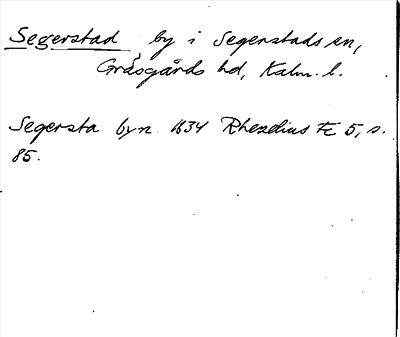 Segerstad, by i Segerstads sn,
Gräsgårds hd, Kalm. l.
Segersta byn 1634 Rhezelius Fc 5, s.
85.